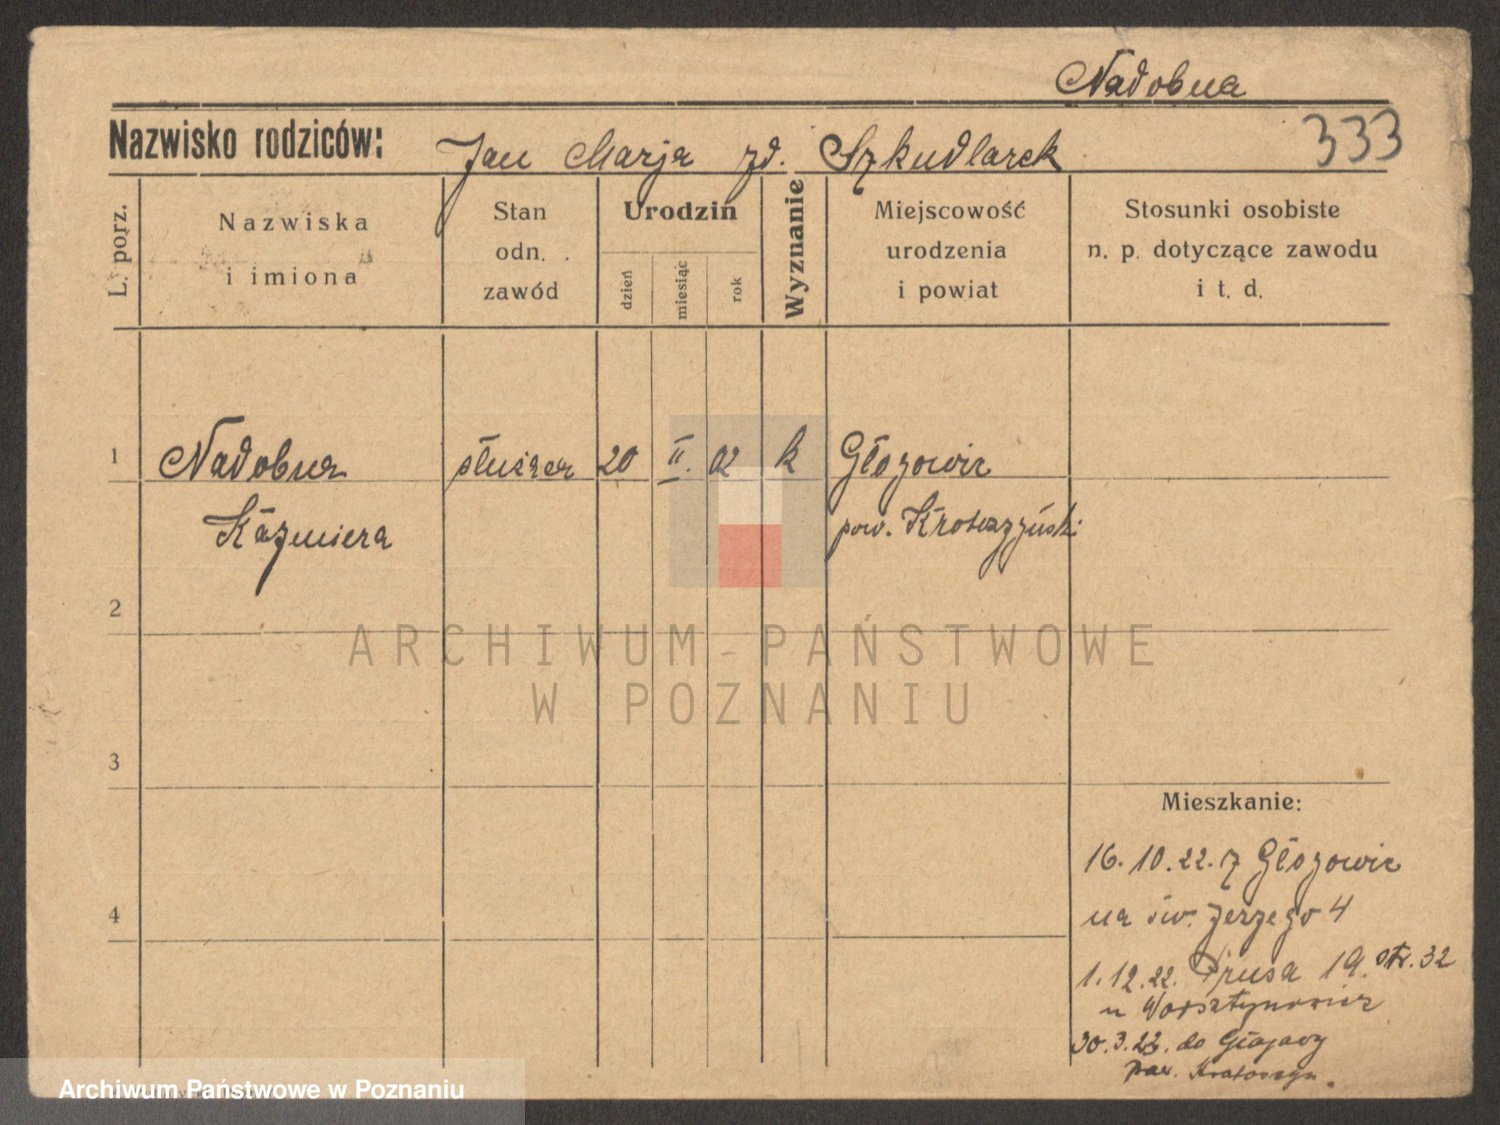 Nadobna
Nazwisko rodziców: Jan Marja zd. Szkudlarek 333
L. porz.
Nazwiska
i imiona
Stan
odn.
zawód
Urodzin
dzień
miesiąc
rok
Wyznanie
Miejscowość
urodzenia
i powiat
Stosunki osobiste
n. p. dotyczące zawodu
i t. d.
1 Nadobna 20 II. 02 k
Kaźmiera
pow. Krotoszyński
2
ARCHIWUM PAŃSTWOWE
W POZNANIU
3
Mieszkanie:
16. 10. 22. z
4
na św. Jerzego 4
1. 12. 22. Prusa 19. str. 32
u
30. 3. 23. do
pow. Krotoszyn.
Archiwum Państwowe w Poznaniu